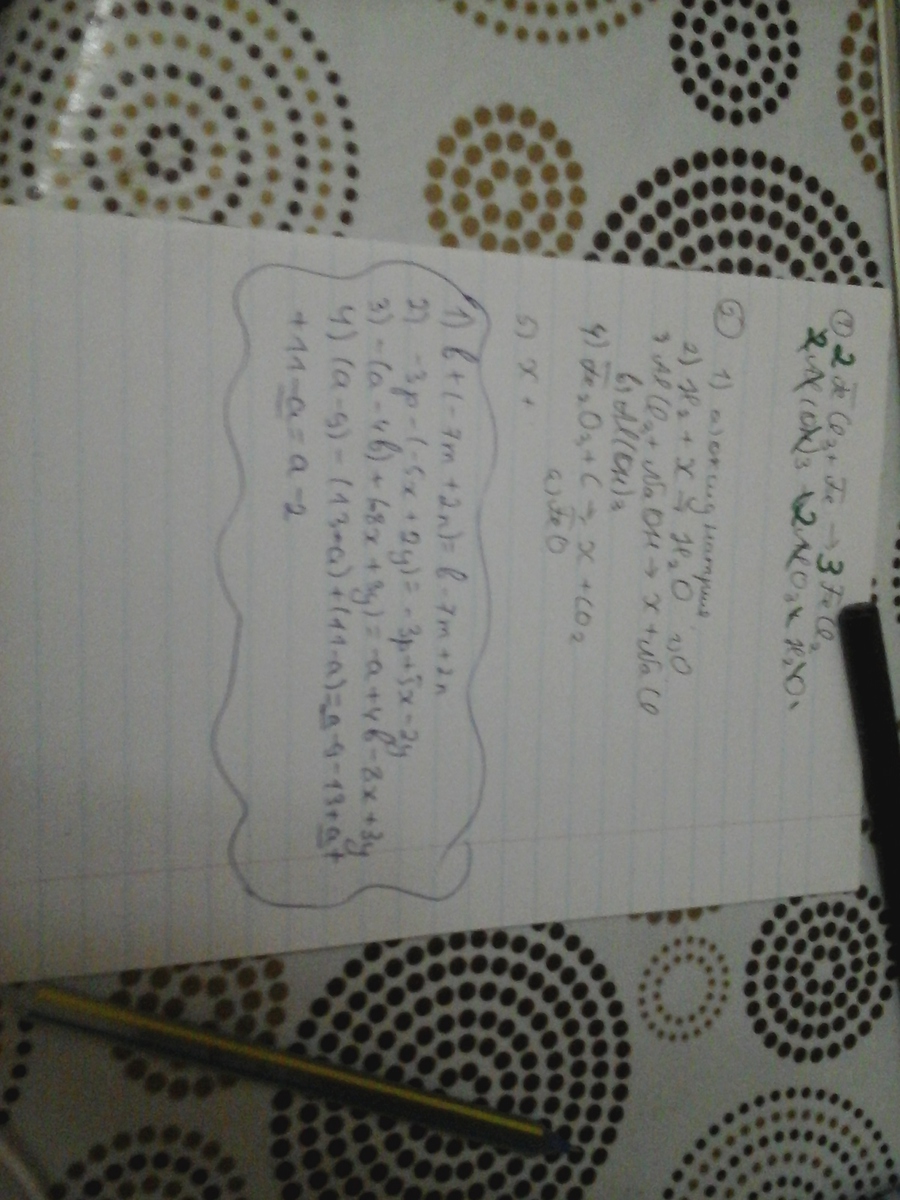 ① 2FeCl₃ + Fe → 3FeCl₂
⑤ 1) a) оксид натрия.
2) H₂ + x → H₂O г) O
3) AlCl₃ + NaOH → x + NaCl
б) Al(OH)₃
4) Fe₂O₃ + C → x + CO₂
a) FeO
5) x +
1) b + (-7m + 2n) = b - 7m + 2n
2) -3p - (-5x + 2y) = -3p + 5x - 2y
3) -(a - 4b) + (-8x + 3y) = -a + 4b - 8x + 3y
4) (a - 9) - (13 - a) + (11 - a) = a - 9 - 13 + a +
+ 11 - a = a - 2